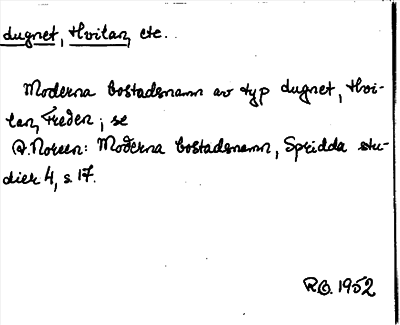 Lugnet, Hvilan, etc.
Moderna bostadsnamn av typ Lugnet, Hvi-
lan, Freden; se
A. Noreen: Moderna bostadsnamn, Spridda stu-
dier 4, s. 17.
R.O. 1952